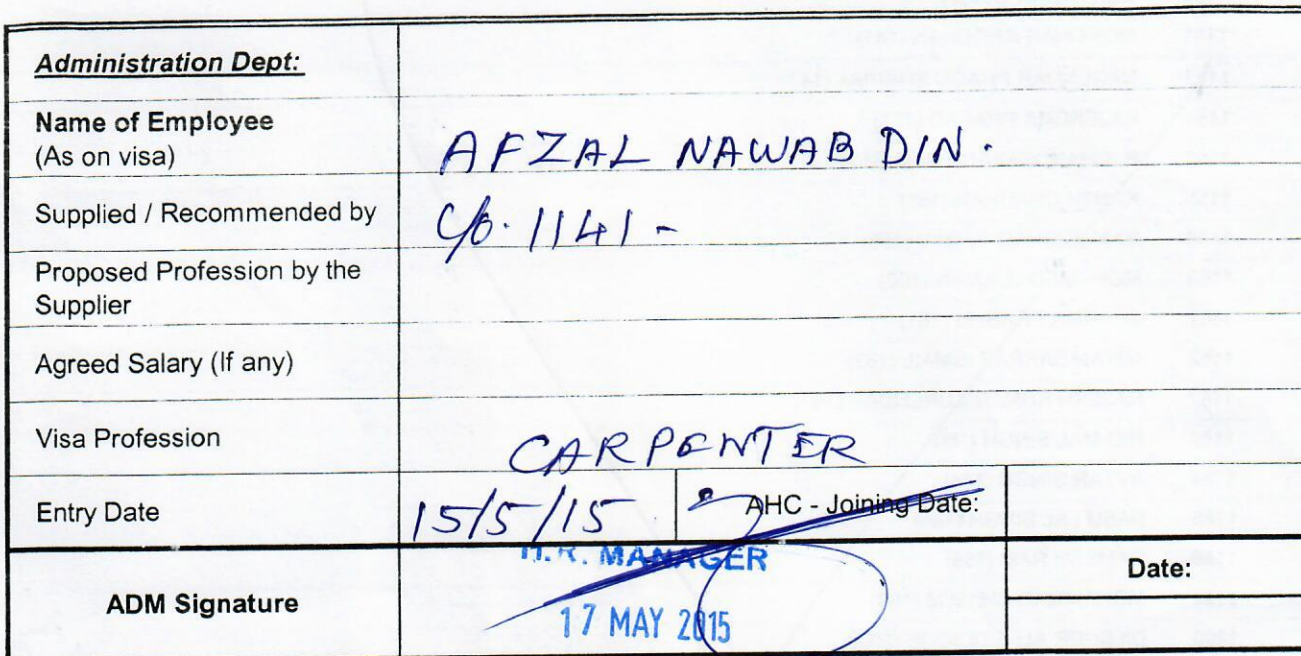 Administration Dept:
Name of Employee
(As on visa)
AFZAL NAWAB DIN.
Supplied / Recommended by
C/o. 1141 -
Proposed Profession by the
Supplier
Agreed Salary (If any)
Visa Profession
CARPENTER
Entry Date
15/5/15
AHC - Joining Date:
ADM Signature
H.R. MANAGER
17 MAY 2015
Date: